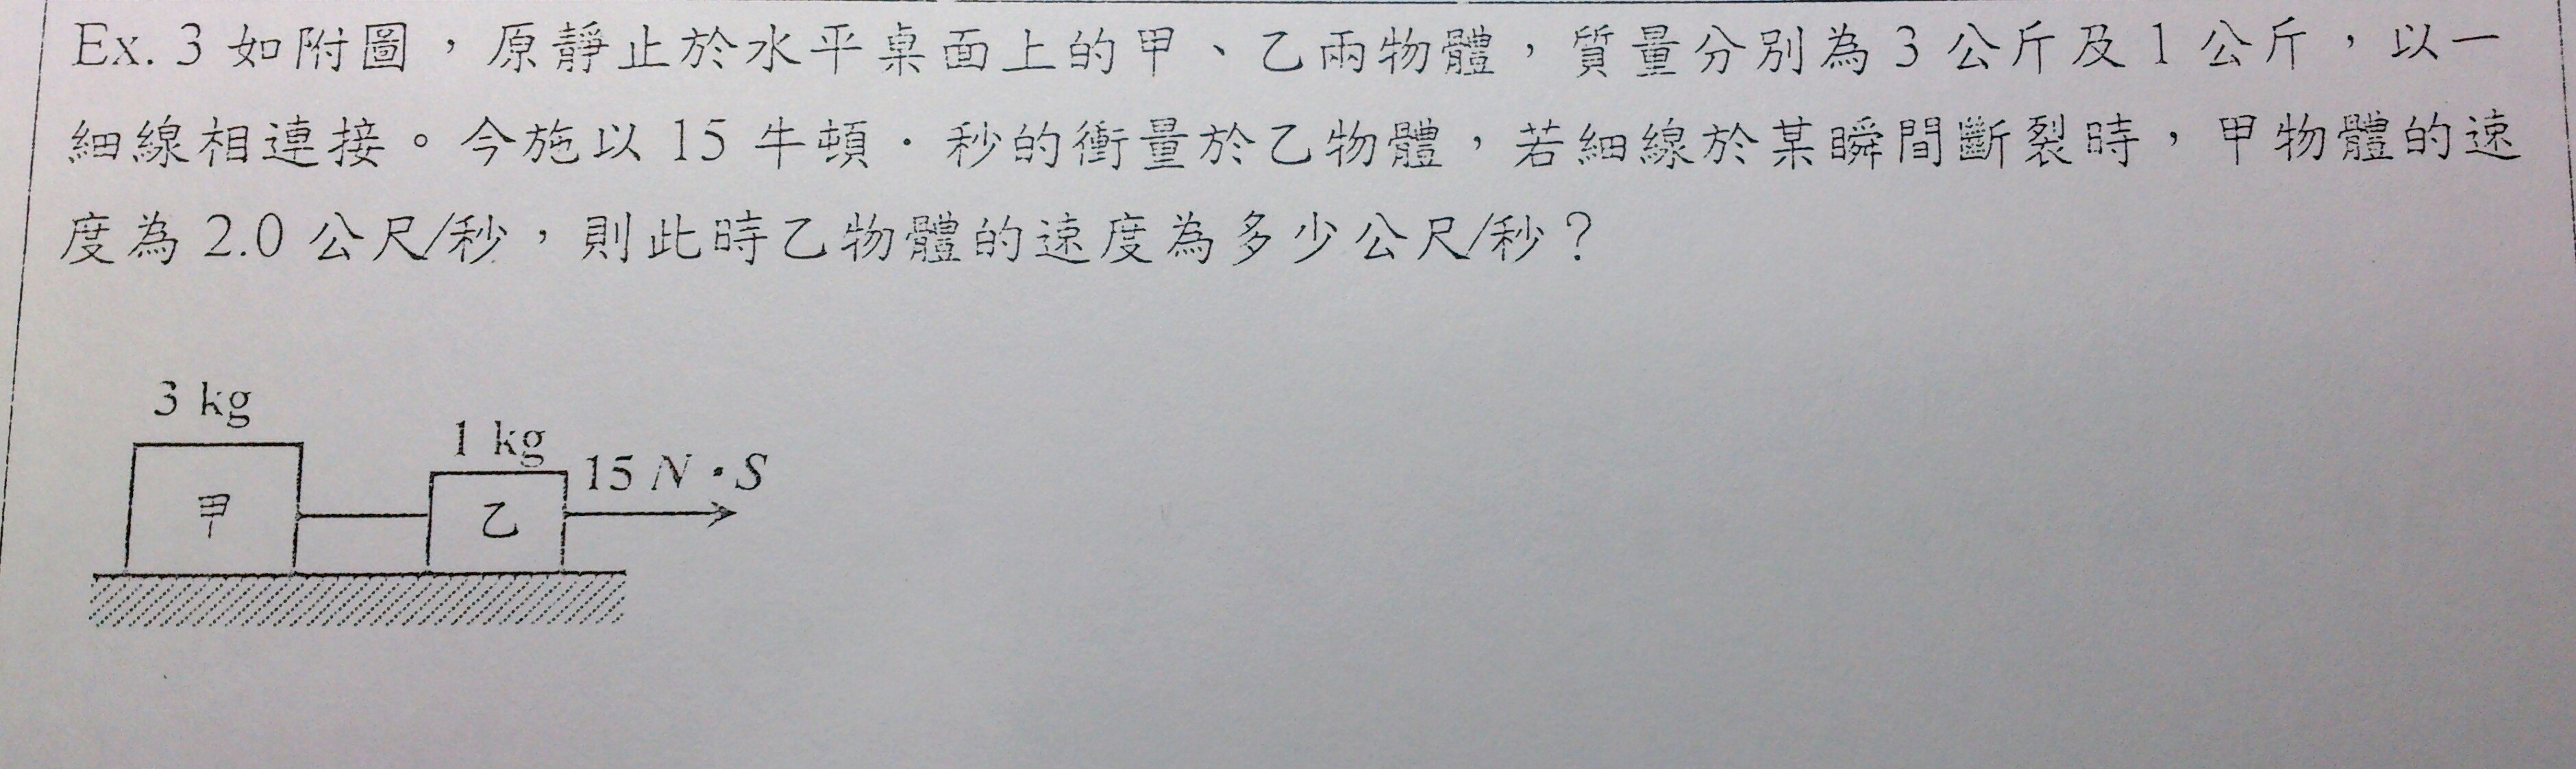 Ex. 3 如附圖，原靜止於水平桌面上的甲、乙兩物體，質量分別為 3 公斤及 1 公斤，以一
細線相連接。今施以 15 牛頓．秒的衝量於乙物體，若細線於某瞬間斷裂時，甲物體的速
度為 2.0 公尺/秒，則此時乙物體的速度為多少公尺/秒？
3 kg
1 kg
15 N・S
甲
乙